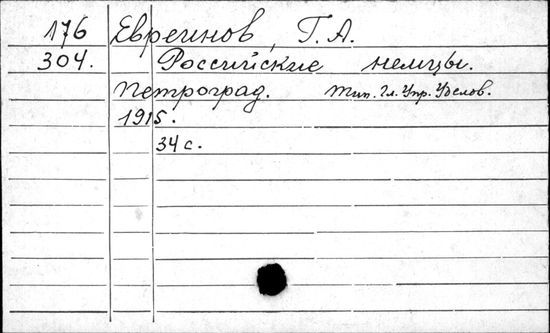 176 Евреинов, Г. А.
304. Российские немцы.
Петроград. Тип. Гл. Упр. Уделов.
1915.
34 с.